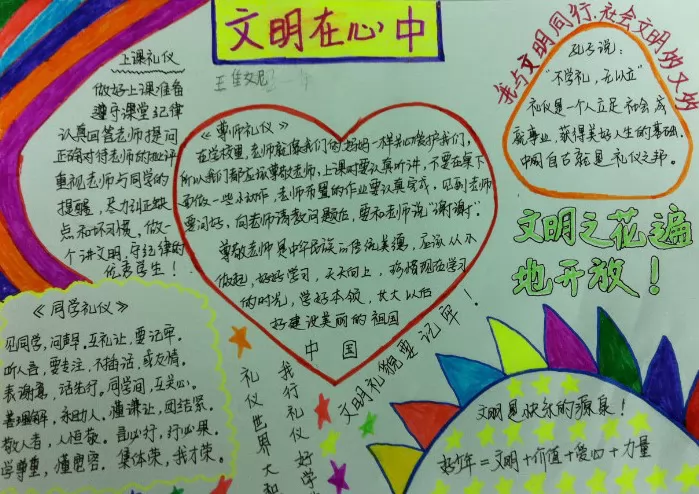 文明在心中
上课礼仪
做好上课准备
遵守课堂纪律
认真回答老师提问
正确对待老师的批评
重视老师与同学的
提醒，尽力纠正缺
点和坏习惯，做一
个讲文明，守纪律的
优秀学生！
《尊师礼仪》
在学校里，老师就像我们的妈妈一样关心爱护我们，
所以我们都应该尊敬老师，上课时要认真听讲，不要在桌下
面做一些小动作，老师布置的作业要认真完成，见到老师
要问好，向老师请教问题后，要和老师说“谢谢”。
尊敬老师是中华民族的传统美德，应该从小
做起，好好学习，天天向上，珍惜现在学习
的时光，学好本领，长大以后
好建设美丽的祖国
中国
我与文明同行.社会文明
孔子说：
“不学礼，无以立”
礼仪是一个人立足社会成
就事业，获得美好人生的基础。
中国自古就是礼仪之邦。
文明之花遍
地开放！
《同学礼仪》
见同学，问声早，互礼让，要记牢。
听人言，要专注，不插话，
表谢意，话先行。同学间，互关心。
善理解，永助人，懂谦让，团结紧。
敬人者，人恒敬。言必行，行必果。
学尊重，懂宽容。集体荣，我才荣。
礼仪世界大和
我行礼仪好学
文明礼貌要记牢！
文明是快乐的源泉！
好少年=文明+价值+爱心+力量